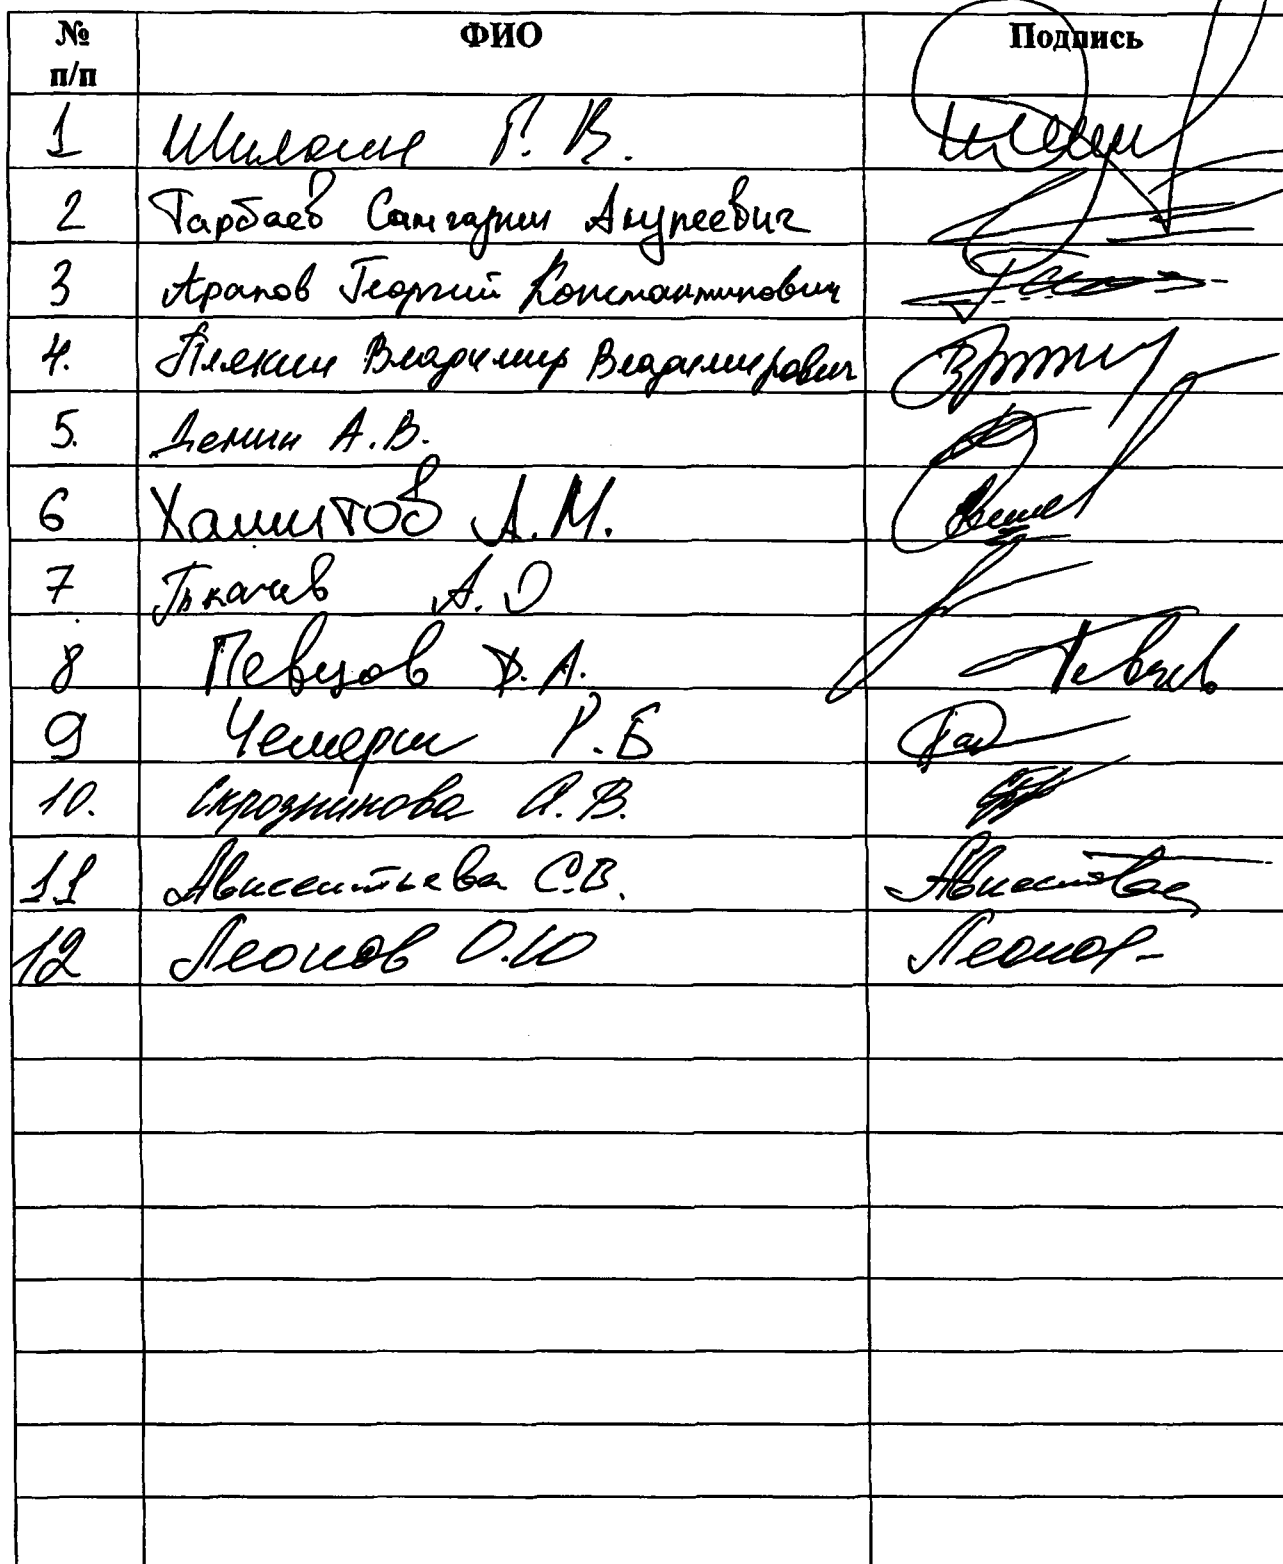 № п/п ФИО Подпись
1 Шилкин Г. В.
2 Тарбаев Сангарии Акупеевич
3 Арапов Георгий Константинович
4. Плякин Владимир Владимирович
5. Демин А.В.
6 Хамитов А.М.
7 Ткачев А.О
8 Певцов Д.А. Певцов
9 Чемерис Р.Б
10. Скрозникова А.В.
11 Авксентьева С.В.
12 Леонов О.Ю Леонов